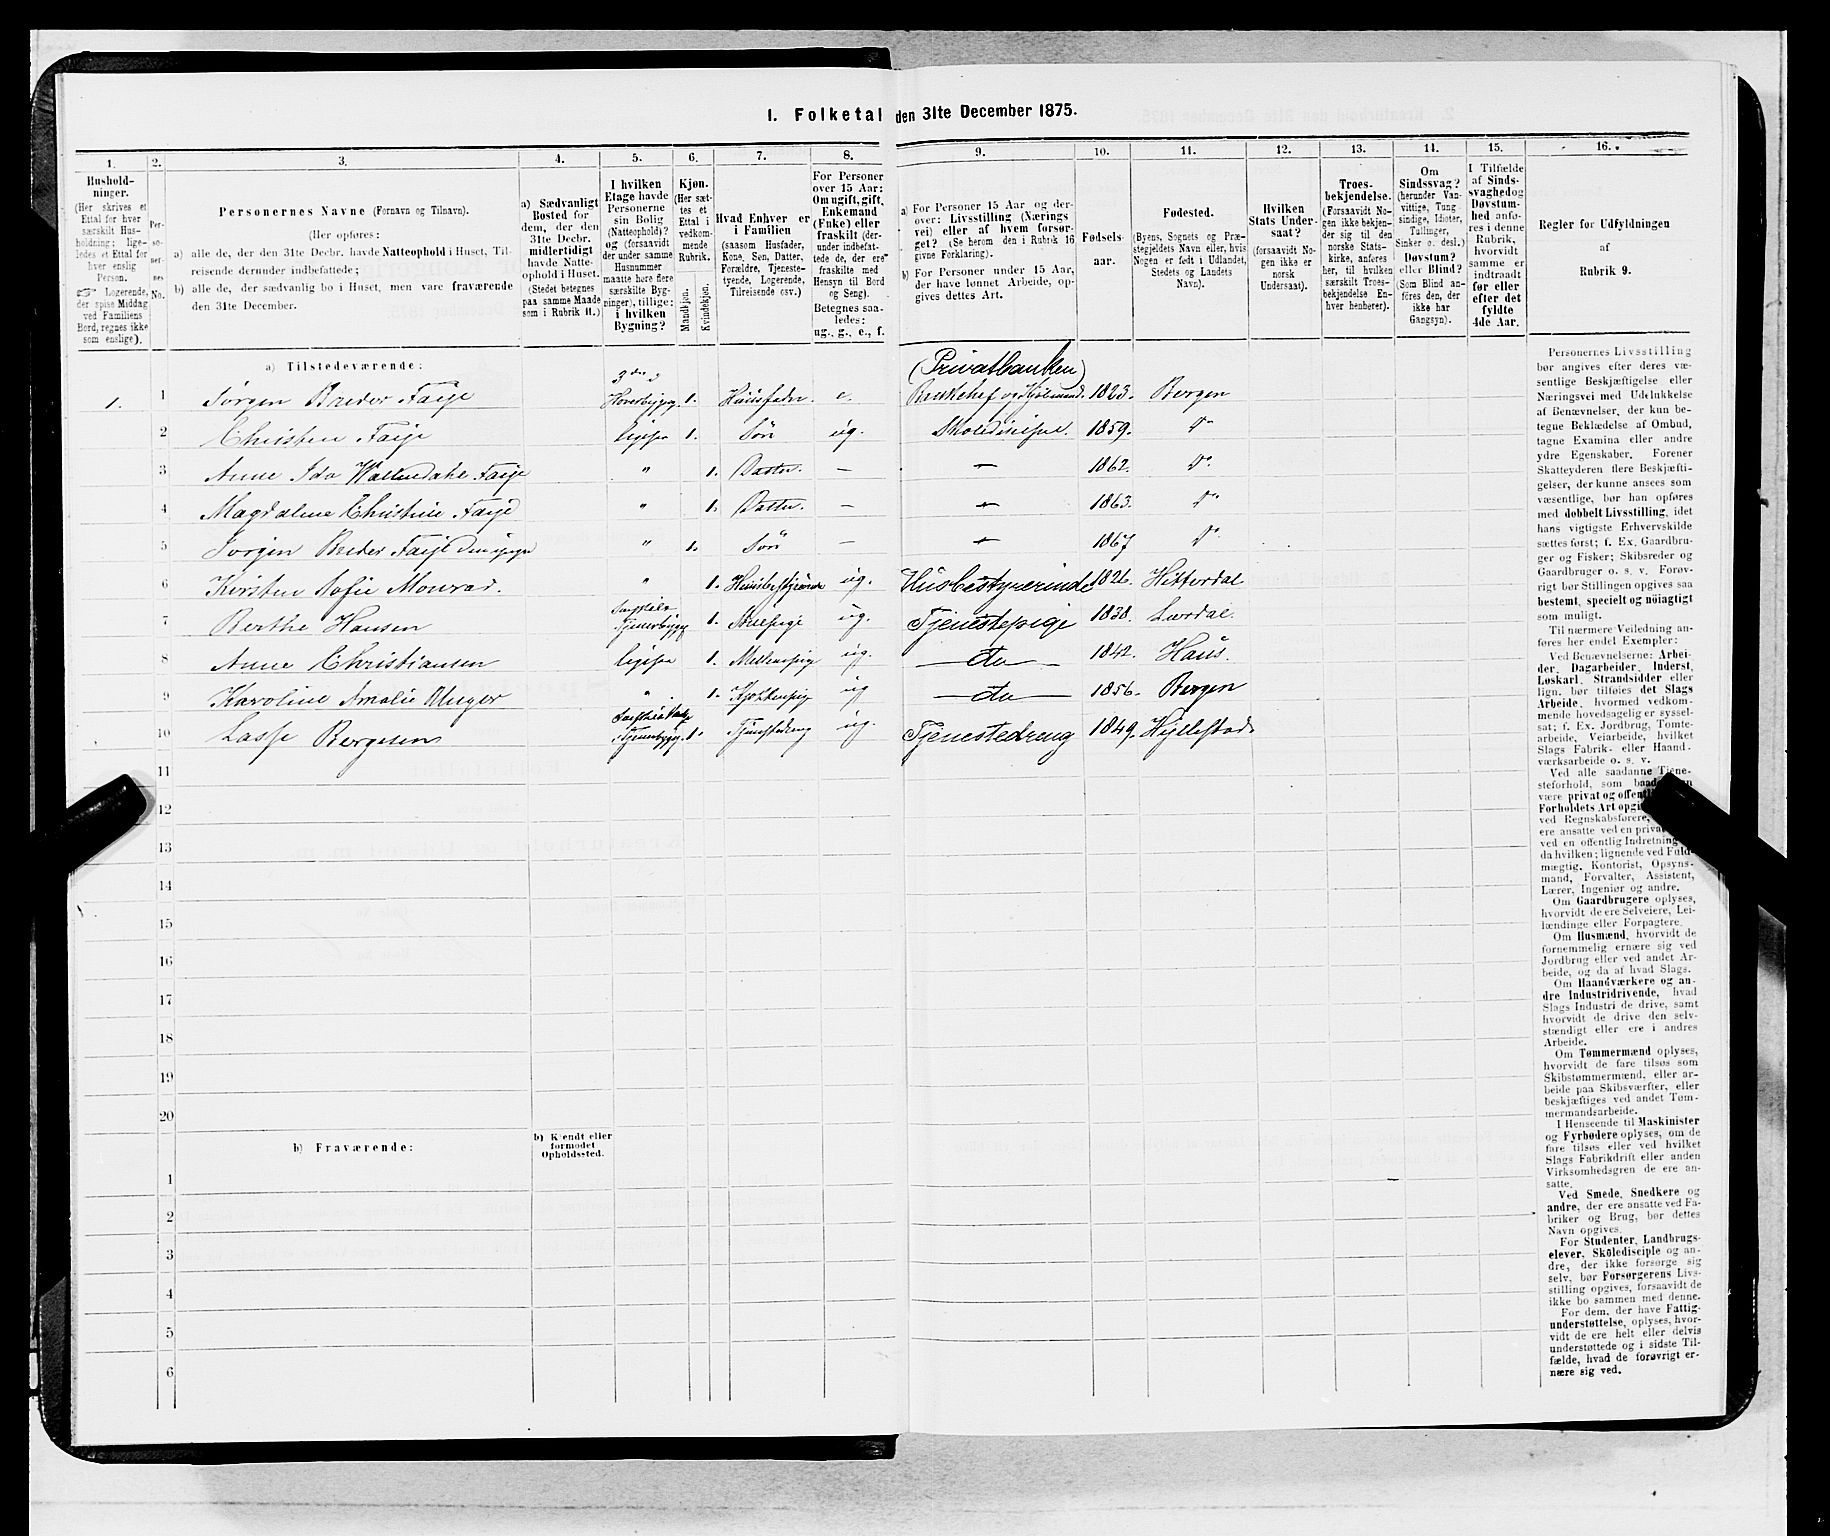 1. Folketal den 31te December 1875.
1.
Hushold-
ninger.
(Her skrives et
Ettal for hver
særskilt Hus-
holdning; lige-
ledes et Ettal for
hver enslig
Person.
☞ Logerende,
der spise Middag
ved Familiens
Bord, regnes ikke
som enslige).
2.
Per-
so-
ner-
nes
No.
3.
Personernes Navne (Fornavn og Tilnavn).
(Her opføres:
a) alle de, der den 31te Decbr. havde Natteophold i Huset, Til-
reisende derunder indbefattede;
b) alle de, der sædvanlig bo i Huset, men vare fraværende
den 31te December.
4.
a) Sædvanligt
Bosted for
dem, der den
31te Decbr.
midlertidigt
havde Natte-
ophold i Huset.
(Stedet betegnes
paa samme Maade
som i Rubrik 11.)
5.
I hvilken
Etage havde
Personerne
sin Bolig
(Natteophold)?
og (forsaavidt
der under samme
Husnummer
maatte høre flere
særskilte Byg-
ninger), tillige:
i hvilken
Bygning?
6.
Kjøn.
(Her sæt-
tes et
Ettal i
vedkom-
mende
Rubrik.
Mandkjøn.
Kvindekjøn.
7.
Hvad Enhver er
i Familien
(saasom Husfader,
Kone, Søn, Datter,
Forældre, Tjeneste-
tyende, Logerende,
Tilreisende osv.)
8.
For Personer
over 15 Aar:
Om ugift, gift,
Enkemand
(Enke) eller
fraskilt (der-
under indbefat-
tede de, der ere
fraskilte med
Hensyn til Bord
og Seng).
Betegnes saa-
ledes:
ug., g., e., f.
9.
a) For Personer 15 Aar og der-
over: Livsstilling (Nærings
vei) eller af hvem forsør-
get? (Se herom den i Rubrik 16
givne Forklaring).
b) For Personer under 15 Aar,
der have lønnet Arbeide, op-
gives dettes Art.
10.
Fødsels-
aar.
11.
Fødested.
(Byens, Sognets og Præ-
stegjeldets Navn eller, hvis
Nogen er født i Udlandet,
Stedets og Landets
Navn).
12.
Hvilken
Stats Under-
saat?
(forsaavidt No-
gen ikke er
norsk
Undersaat).
13.
Troes-
bekjendelse.
(Forsaavidt No-
gen ikke bekjen-
der sig til den
norske Stats-
kirke, anføres
her, til hvilken
særskilt Troes-
bekjendelse En-
hver henhører).
14.
Om
Sindssvag?
(herunder Van-
vittige, Tung
sindige, Idioter,
Tullinger,
Sinker o. desl.)
Døvstum?
eller Blind?
(Som Blind an-
føres den, der
ikke har
Gangsyn).
15.
I Tilfælde
af Sinds-
svaghed og
Døvstum-
hed anfø-
res i denne
Rubrik,
hvorvidt
samme er
indtraadt
før eller
efter det
fyldte
4de Aar.
16.
Regler for Udfyldningen
af
Rubrik 9.
a) Tilstedeværende:
(Privatbanken)
1. 1 Jørgen Breder Faye 1. Huusfader e. 1823. Bergen
2 Christen Faye 1. Søn ug. 1859. do
3 Anne Ida Faye " 1. Datter. — — 1862. do
4 Magdalene Christine Faye " 1. Datter. — — 1863. do
5 Jørgen Breder Faye " 1. Søn — — 1867 do
6 Kirsten Sofie Monrad. " 1. ug. Husbestyrerinde 1826. Hitterdal
7 Berthe Hansen 1. Stuepige ug. Tjenestepige 1838. Lærdal.
8 Anne Christiansen 1. ug. do 1842. Haus.
9 Karoline Amalie Unger " 1. ug do 1856. Bergen
10 Lasse Bergesen 1. Tjenestedreng ug. Tjenestedreng 1849. Hjellestad
11
12
13
14
15
16
17
18
19
20
b) Fraværende:
b) Kjendt eller
formodet
Opholdssted.
1
2
3
4
5
6
Personernes Livsstilling
bør angives efter deres væ-
sentlige Beskjæftigelse eller
Næringsvei med Udelukkelse
af Benævnelser, der kun be-
tegne Beklædelse af Ombud,
tagne Examina eller andre
ydre Egenskaber. Forener
Skatteyderen flere Beskjæfti-
gelser, der kunne ansees som
væsentlige, bør han opføres
med dobbelt Livsstilling, idet
hans vigtigste Erhvervskilde
sættes først; f. Ex. Gaardbru-
ger og Fisker; Skibsreder og
Gaardbruger o. s. v. Forøv-
rigt bør Stillingen opgives saa
bestemt, specielt og nöiagtigt
som muligt.
Til nærmere Veiledning an-
føres her endel Exempler:
Ved Benævnelserne: Arbei-
der, Dagarbeider, Inderst,
Løskarl, Strandsidder eller
lign. bør tilføies det Slags
Arbeide, hvormed vedkom-
mende hovedsagelig er syssel-
sat; f. Ex. Jordbrug, Tomte-
arbeide, Veiarbeide, hvilket
Slags Fabrik- eller Haand-
værksarbeide o. s. v.
Ved alle saadanne Tjene-
steforhold, som baade kan
være privat og offentligt,
Forholdets Art opgives
ved Regnskabsførere,
ere ansatte ved en privat
ved en offentlig Indretning
da hvilken; lignende ved Fuld-
mægtig, Kontorist, Opsyns-
mand, Forvalter, Assistent,
Lærer, Ingeniør og andre.
Om Gaardbrugere oplyses,
hvorvidt de ere Selveiere, Lei-
lændinge eller Forpagtere.
Om Husmænd, hvorvidt de
fornemmelig ernære sig ved
Jordbrug eller ved andet Ar-
beide, og da af hvad Slags.
Om Haandværkere og an-
dre Industridrivende, hvad
Slags Industri de drive, samt
hvorvidt de drive den selv-
stændigt eller ere i andres
Arbeide.
Om Tømmermænd oplyses,
hvorvidt de fare tilsøs som
Skibstømmermænd, eller ar-
beide paa Skibsværfter, eller
beskjæftiges ved andet Tøm-
mermandsarbeide.
I Henseende til Maskinister
og Fyrbødere oplyses, om de
fare tilsøs eller ved hvilket
Slags Fabrikdrift eller anden
Virksomhedsgren de ere an-
satte.
Ved Smede, Snedkere og
andre, der ere ansatte ved Fa-
briker og Brug, bør dettes
Navn opgives.
For Studenter, Landbrugs-
elever, Skoledisciple og an-
dre, der ikke forsørge sig
selv, bør Forsørgerens Livs-
stilling opgives, forsaavidt de
ikke bo sammen med denne.
For dem, der have Fattig-
understøttelse, oplyses, hvor-
vidt de ere helt eller delvis
understøttede og i sidste Til-
fælde, hvad de forøvrigt er-
nære sig ved.